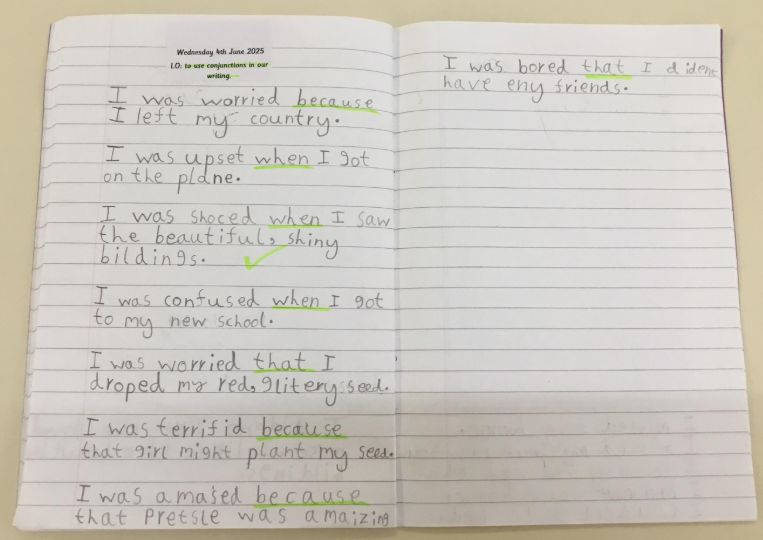 Wednesday 4th June 2025
LO: to use conjunctions in our
writing.
I was worried because
I left my country.
I was upset when I got
on the plane.
I was shoced when I saw
the beautiful, shiny
bildings.
I was confused when I got
to my new school.
I was worried that I
droped my red, glitery seed.
I was terrifid because
that girl might plant my seed.
I was amased because
that Pretsle was amaizing
I was bored that I dident
have eny friends.